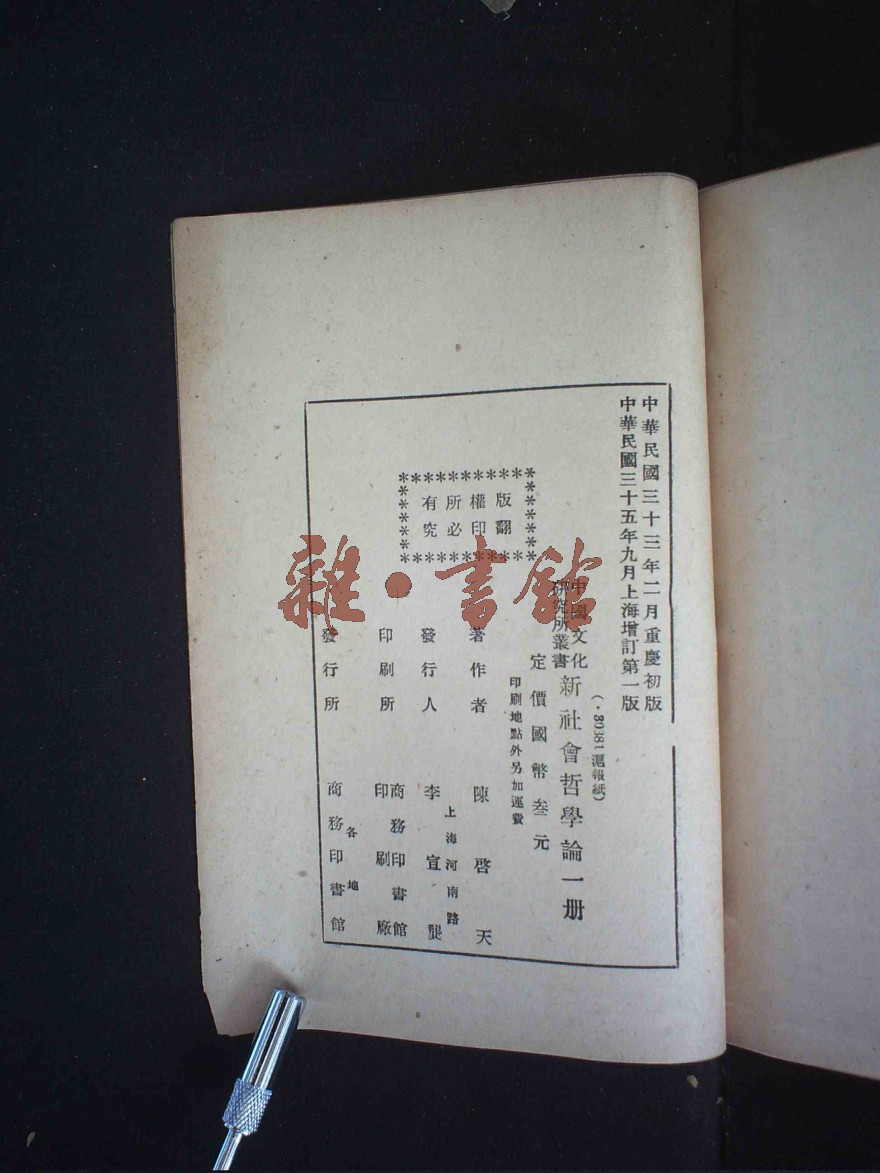 中華民國三十三年二月重慶初版
中華民國三十五年九月上海增訂第一版
(·30381滬報紙)
中國文化
研究所叢書
新社會哲學論一册
定價國幣叁元
印刷地點外另加運費
版權所有
翻印必究
著作者 陳啓天
發行人 李宣龔
上海河南路
印刷所 商務印書館
印刷廠
各地
發行所 商務印書館
雜·書館